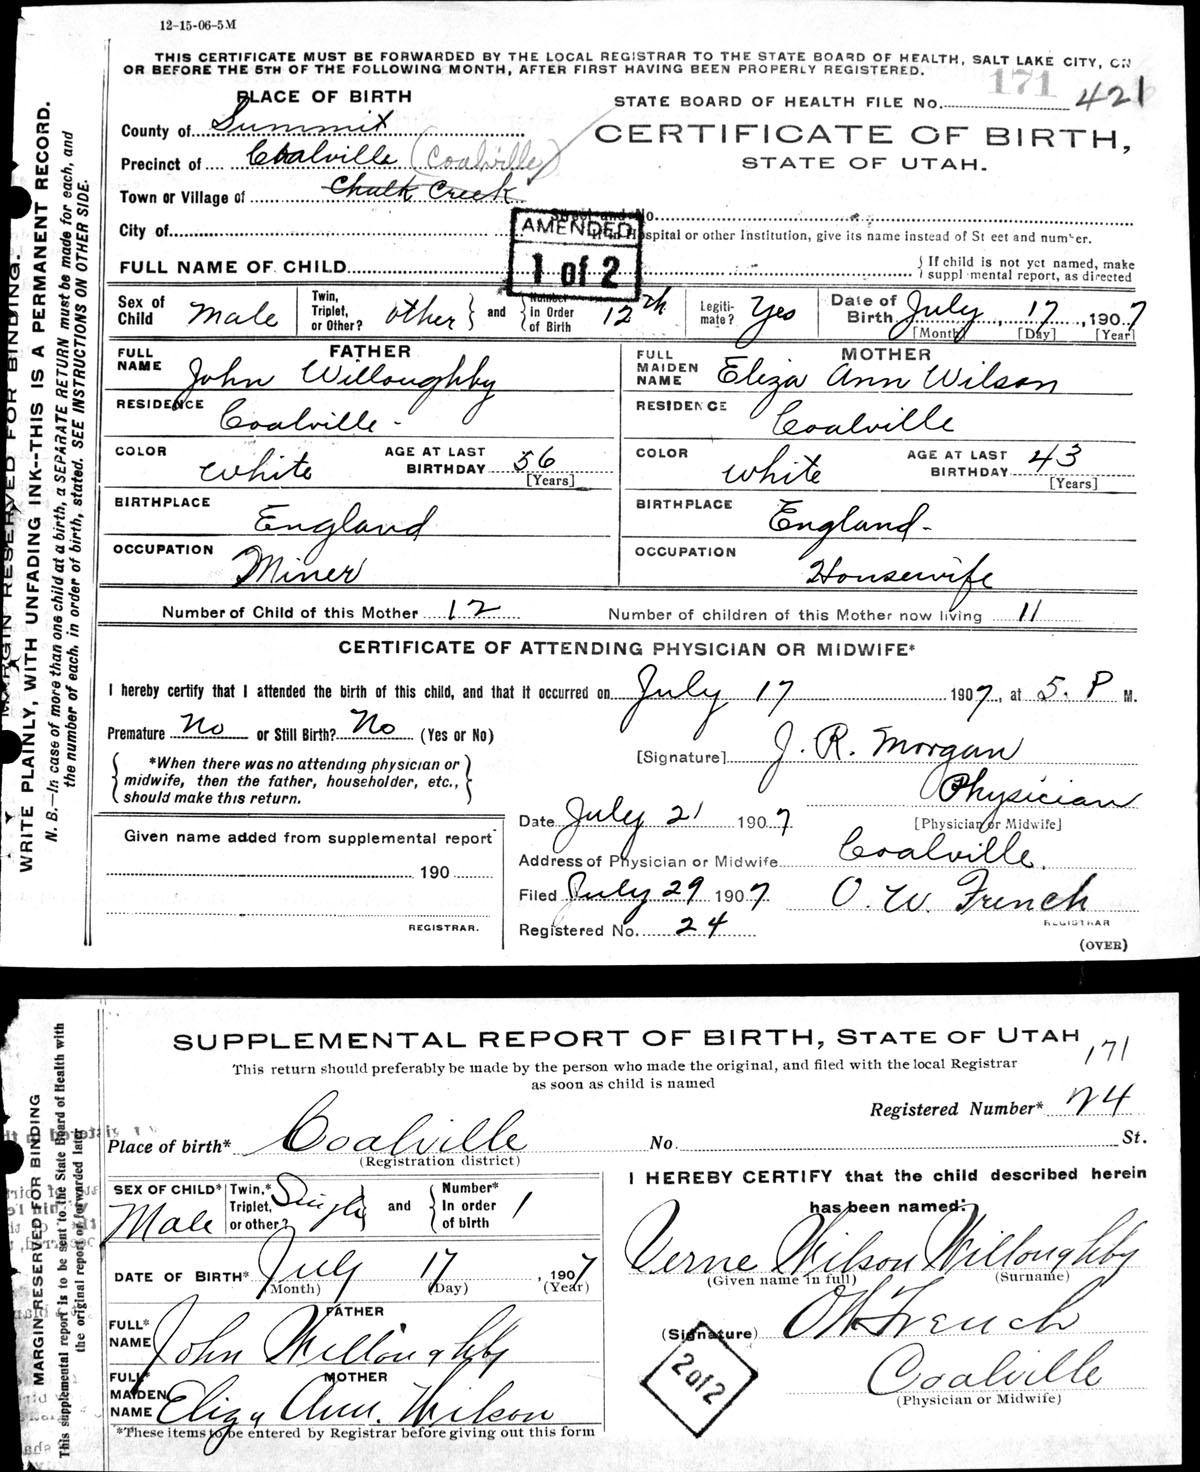 12-15-06-5M
THIS CERTIFICATE MUST BE FORWARDED BY THE LOCAL REGISTRAR TO THE STATE BOARD OF HEALTH, SALT LAKE CITY, ON
OR BEFORE THE 5TH OF THE FOLLOWING MONTH, AFTER FIRST HAVING BEEN PROPERLY REGISTERED.
171
PLACE OF BIRTH
STATE BOARD OF HEALTH FILE No. 421
County of Summit
CERTIFICATE OF BIRTH,
Precinct of Coalville (Coalville)
STATE OF UTAH.
Town or Village of Chalk Creek
Street and No.
City of
AMENDED
1 of 2
Hospital or other Institution, give its name instead of St eet and number.
FULL NAME OF CHILD
If child is not yet named, make
suppl mental report, as directed
Sex of Child Male
Twin, Triplet, or Other? Other and Number in Order of Birth 12th
Legiti- mate? Yes
Date of Birth July 17, 1907
[Month] [Day] [Year]
FATHER
FULL NAME John Willoughby
RESIDENCE Coalville
COLOR White AGE AT LAST BIRTHDAY 56
[Years]
BIRTHPLACE England
OCCUPATION Miner
MOTHER
FULL MAIDEN NAME Eliza Ann Wilson
RESIDENCE Coalville
COLOR White AGE AT LAST BIRTHDAY 43
[Years]
BIRTHPLACE England
OCCUPATION Housewife
Number of Child of this Mother 12 Number of children of this Mother now living 11
CERTIFICATE OF ATTENDING PHYSICIAN OR MIDWIFE*
I hereby certify that I attended the birth of this child, and that it occurred on July 17 1907, at 5. P M.
Premature No or Still Birth? No (Yes or No)
*When there was no attending physician or
midwife, then the father, householder, etc.,
should make this return.
[Signature] J. R. Morgan
Physician
[Physician or Midwife]
Date July 21 1907
Address of Physician or Midwife Coalville.
Filed July 29 1907 O. W. French
REGISTRAR
Registered No. 24
(OVER)
Given name added from supplemental report
190
REGISTRAR.
MARGIN RESERVED FOR BINDING.
WRITE PLAINLY, WITH UNFADING INK--THIS IS A PERMANENT RECORD.
N. B.—In case of more than one child at a birth, a SEPARATE RETURN must be made for each, and
the number of each, in order of birth, stated. SEE INSTRUCTIONS ON OTHER SIDE.
SUPPLEMENTAL REPORT OF BIRTH, STATE OF UTAH
171
This return should preferably be made by the person who made the original, and filed with the local Registrar
as soon as child is named
Registered Number* 24
Place of birth* Coalville No. St.
(Registration district)
SEX OF CHILD* Male
Twin,* Triplet, or other? Single and Number* In order of birth 1
DATE OF BIRTH* July 17, 1907
(Month) (Day) (Year)
FATHER
FULL* NAME John Willoughby
MOTHER
FULL* MAIDEN NAME Eliza Ann. Wilson
*These items to be entered by Registrar before giving out this form
I HEREBY CERTIFY that the child described herein
has been named:
Verne Wilson Willoughby
(Given name in full) (Surname)
(Signature) O W French
Coalville
(Physician or Midwife)
2 of 2
MARGIN RESERVED FOR BINDING
This supplemental report is to be sent to the State Board of Health with
the original report or forwarded later